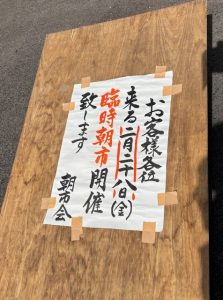 お客様各位
来る二月二十八日(金)
臨時朝市開催
致します
朝市会